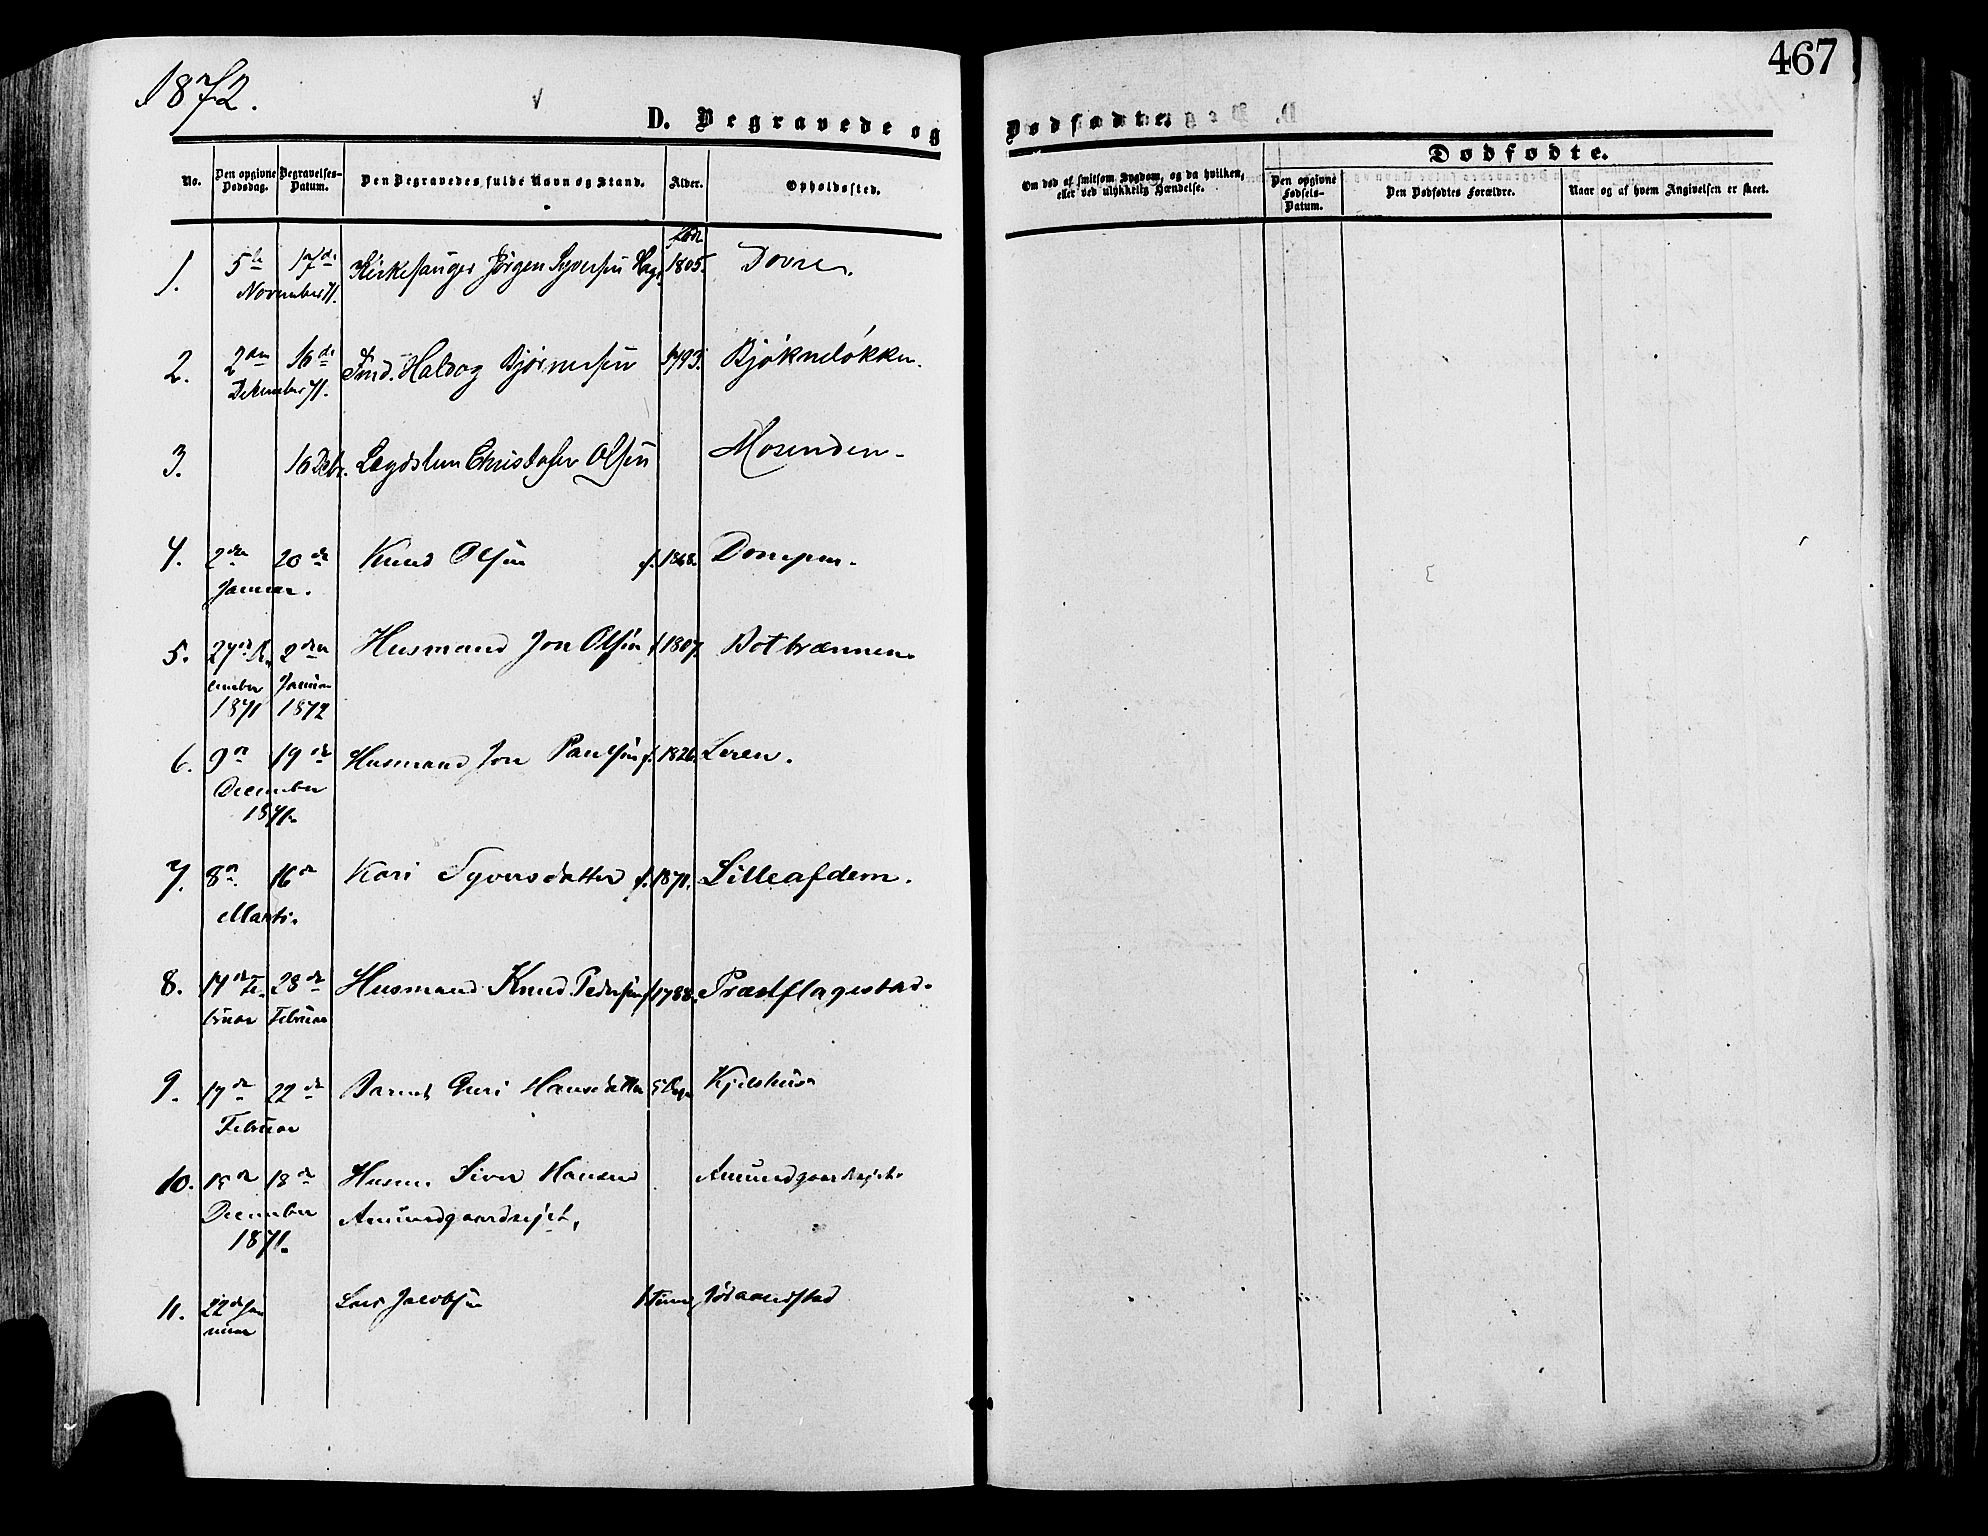 467
1872.
D. Begravede og Dødfødte.
No. Den opgivne Dødsdag. Begravelses-Datum. Den Begravedes fulde Navn og Stand. Alder. Opholdssted. Om død af smitsom Sygdom, og da hvilken, eller ved ulykkelig Hændelse. Dødfødte. Den opgivne Fødsels-Datum. Den Dødfødtes Forældre. Naar og af hvem Angivelsen er skeet.
1. 5te 17de Kirkesanger Jørgen Syversen født 1805. Dovre.
November 71.
2. 2den 16de Halvor Bjørnersen 1793. Bjøkneløkken.
Dekember 71.
3. 16 Debr. Lægdslem Christofer Olsen Mosenden.
4. 2den 20de Knud Olsen f. 1868. Dompen.
Januar.
5. 27de De- 2den Husmand Jon Olsen f 1807. Botbrænnen.
cember Januar
1871 1872
6. 9n 19de Husmand Jon Paulsen f. 1826. Leren.
December
1871.
7. 8n 16n Kari Syversdatter f. 1871. Lilleafdem.
Marts.
8. 14de Fe- 28de Husmand Knud Pedersen f 1788. Præstflagestad.
bruar Februar
9. 17de 22de Barnet Guri Hansdatter Kjelshus
Februar
10. 15de 18de Husm. Siver Hansen Amundgaardsejet.
December Amundgaardsejet,
1871.
11. 22de Ja- Lars Jacobsen 1 Time, Jøraandstad
nuar